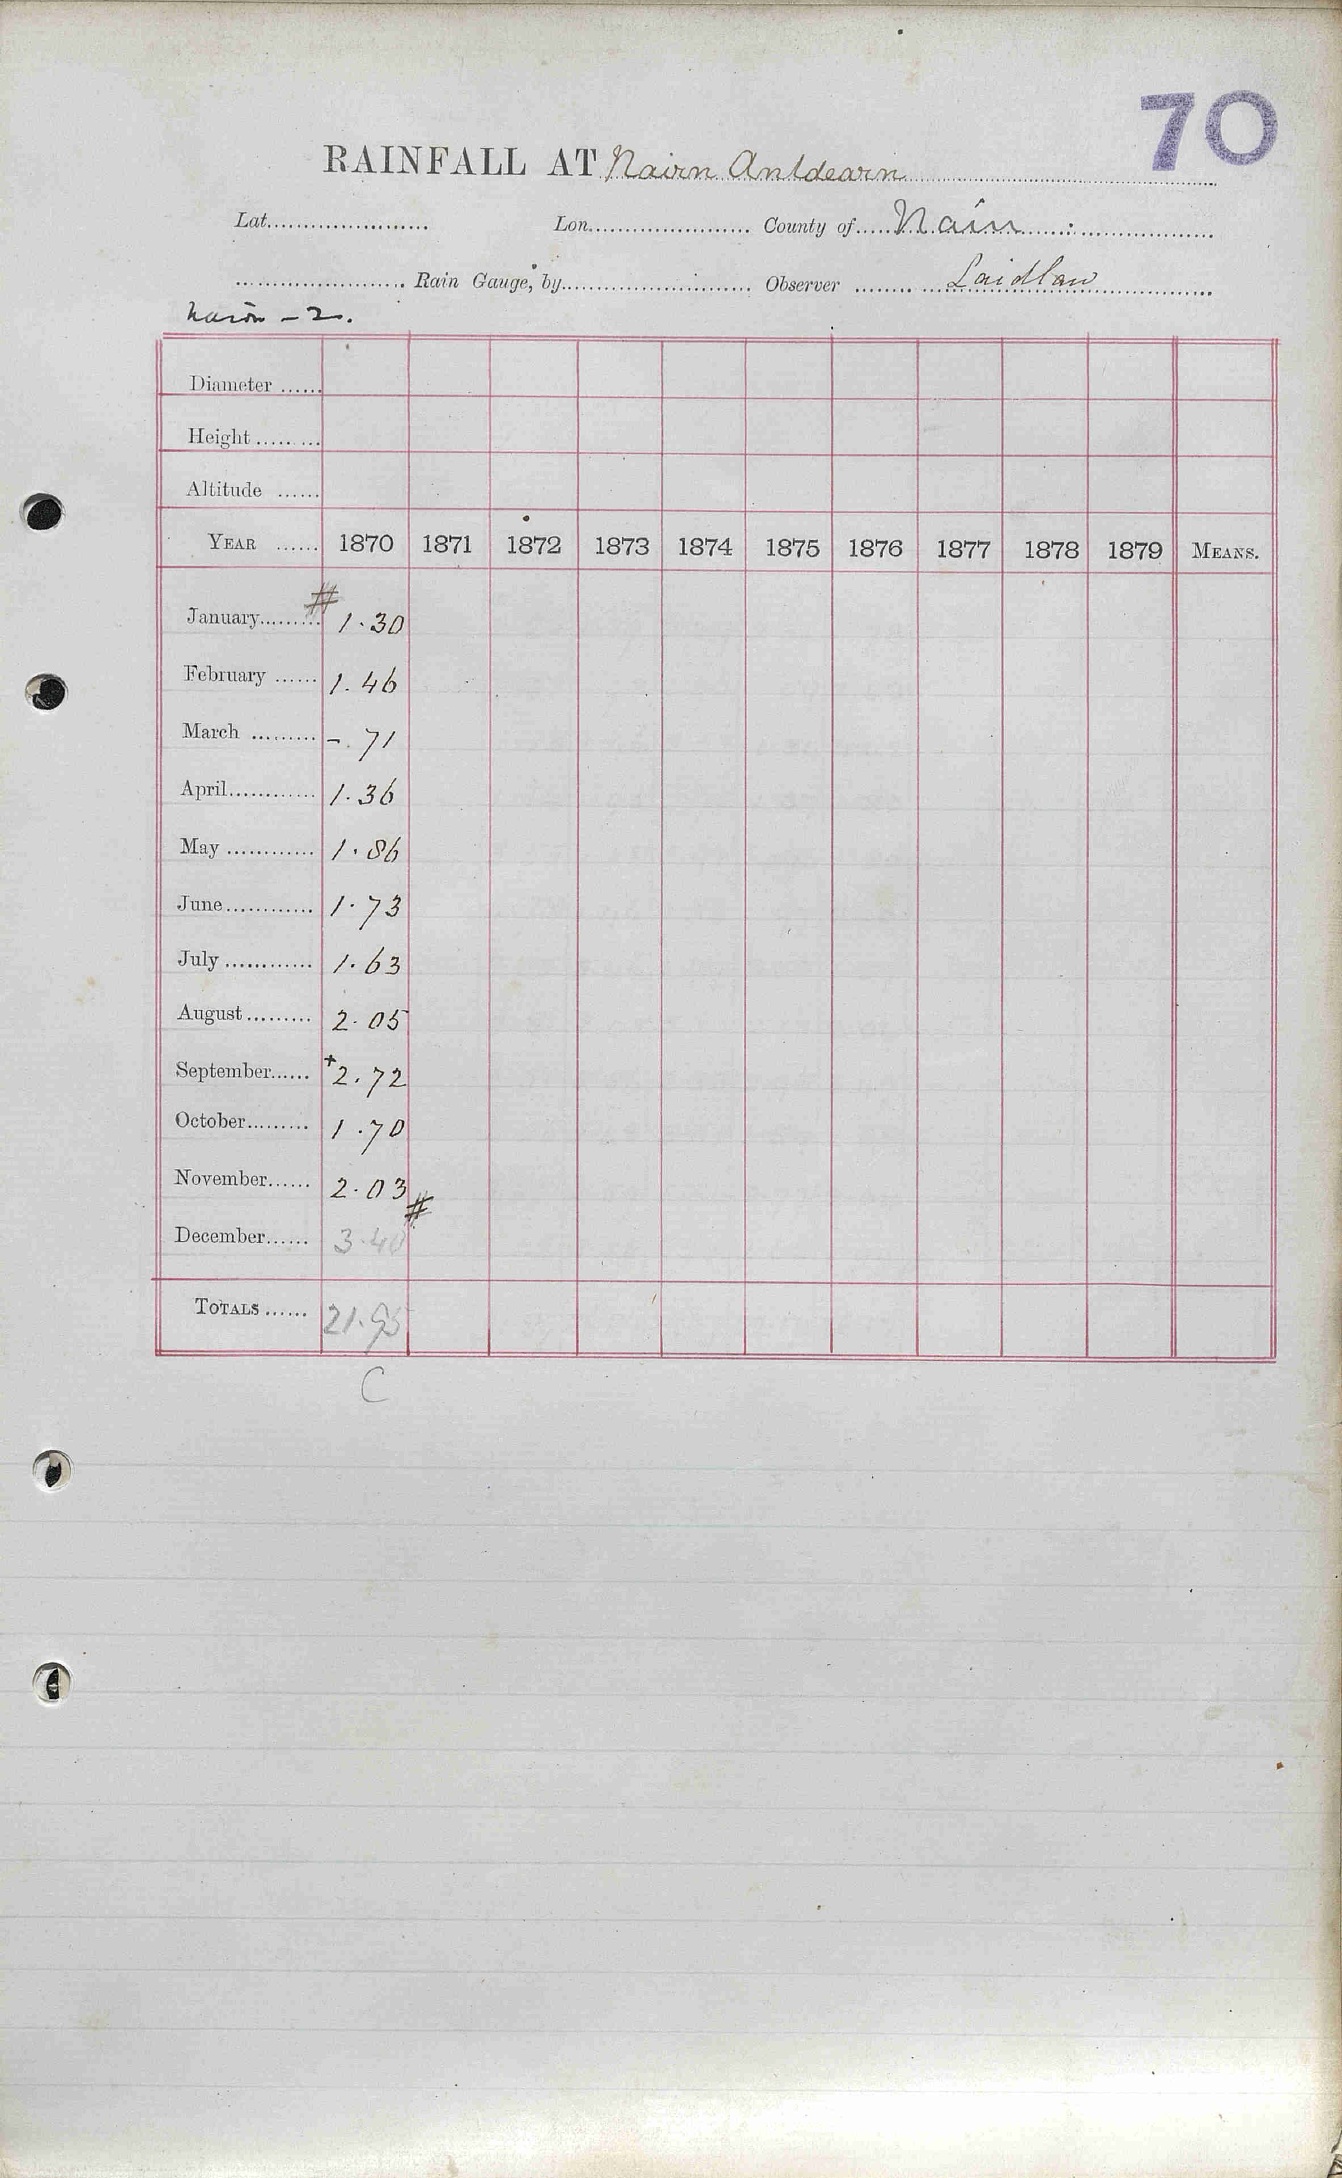 70
RAINFALL AT Nairn Auldearn
Lat. Lon. County of Nairn
Rain Gauge, by Observer Laidlaw
Nairn - 2.
Diameter
Height
Altitude
YEAR 1870 1871 1872 1873 1874 1875 1876 1877 1878 1879 MEANS.
#
January 1.30
February 1.46
March -.71
April 1.36
May 1.86
June 1.73
July 1.63
August 2.05
September +2.72
October 1.70
November 2.03
#
December 3.40
TOTALS 21.95
C